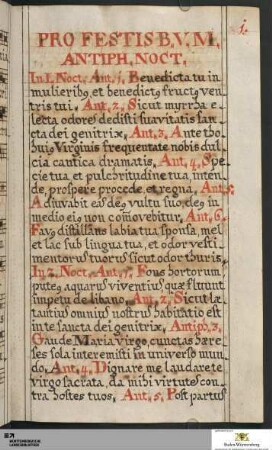 1.
PRO FESTIS B. V. M.
ANTIPH. NOCT.
In I. Noct. Ant. 1. Benedicta tu in
mulieribꝰ, et benedictꝰ fructꝰ ven
tris tui, Ant. 2. Sicut myrrha e
lecta odore dedisti suavitatis san
cta dei genitrix, Ant. 3. Ante tho
hujꝰ Virginis frequentate nobis dul
cia cantica dramatis, Ant. 4. Spe
cie tua et pulchritudine tua inten
de, prospere procede, et regna, Ant. 5.
Adiuvabit eā deꝰ vultu suo, deꝰ in
medio eiꝰ non commovebitur, Ant. 6.
Favꝰ distillans labia tua sponsa, mel
et lac sub lingua tua, et odor vesti
mentorum tuorum sicut odor thuris,
In 2. Noct. Ant. 1. Fons hortorum
puteꝰ aquarū viventium quæ fluunt
impetu de libano, Ant. 2. Sicut læ
tantium omnium nostrū habitatio est
in te sancta dei genitrix, Antiph. 3.
Gaude Maria virgo, cunctas hære
ses sola interemisti in universo mun
do, Ant. 4. Dignare me laudare te
virgo sacrata, da mihi virtutē con
tra hostes tuos, Ant. 5. Post partū
Baden-Württemberg